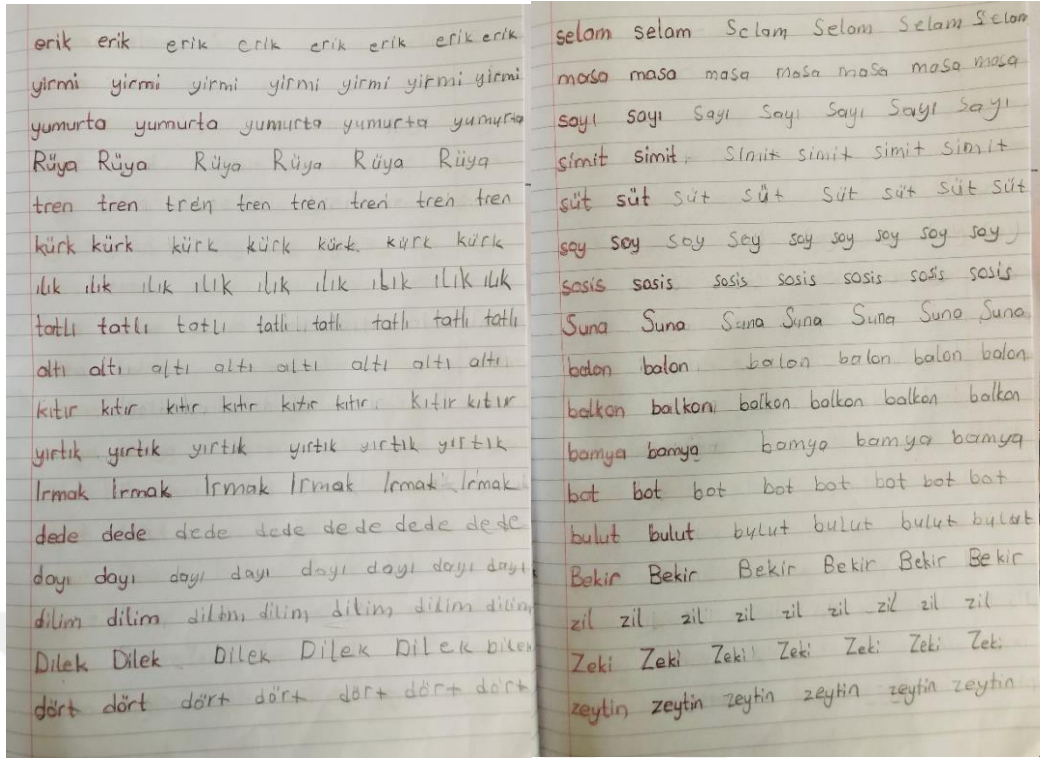 erik erik erik erik erik erik erik erik
yirmi yirmi yirmi yirmi yirmi yirmi yirmi
yumurta yumurta yumurta yumurta yumurta
Rüya Rüya Rüya Rüya Rüya Rüya
tren tren tren tren tren tren tren tren
kürk kürk kürk kürk kürk kürk kürk
ılık ılık ılık ılık ılık ılık ılık ılık ılık
tatlı tatlı tatlı tatlı tatlı tatlı tatlı tatlı
altı altı altı altı altı altı altı altı
kıtır kıtır kıtır kıtır kıtır kıtır kıtır kıtır
yırtık yırtık yırtık yırtık yırtık yırtık
Irmak Irmak Irmak Irmak Irmak Irmak
dede dede dede dede dede dede dede
dayı dayı dayı dayı dayı dayı dayı dayı
dilim dilim dilim dilim dilim dilim dilim
Dilek Dilek Dilek Dilek Dilek Dilek
dört dört dört dört dört dört dört
selam selam Selam Selam Selam Selam
masa masa masa masa masa masa masa
sayı sayı sayı sayı sayı sayı sayı
simit simit simit simit simit simit
süt süt süt süt süt süt süt süt
say say say say say say say say say
sosis sosis sosis sosis sosis sosis sosis
Suna Suna Suna Suna Suna Suna Suna
balon balon balon balon balon balon
balkon balkon balkon balkon balkon balkon
bamya bamya bamya bamya bamya
bot bot bot bot bot bot bot bot
bulut bulut bulut bulut bulut bulut
Bekir Bekir Bekir Bekir Bekir Bekir
zil zil zil zil zil zil zil zil zil
Zeki Zeki Zeki Zeki Zeki Zeki Zeki
zeytin zeytin zeytin zeytin zeytin zeytin